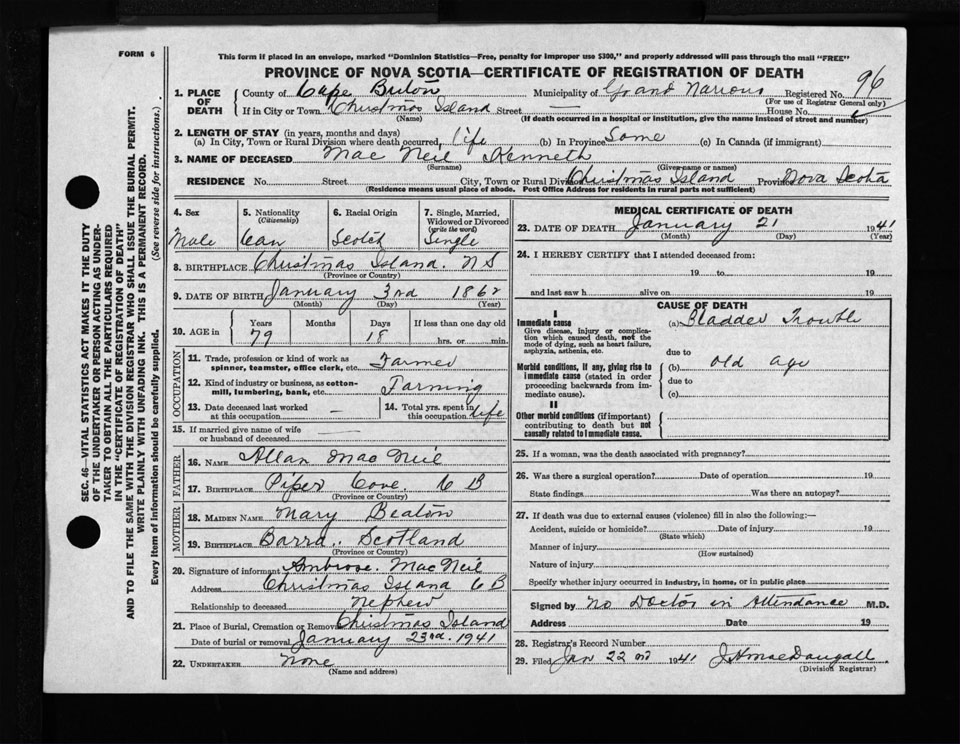 FORM 6
This form if placed in an envelope, marked "Dominion Statistics—Free, penalty for improper use $300," and properly addressed will pass through the mail "FREE"
PROVINCE OF NOVA SCOTIA—CERTIFICATE OF REGISTRATION OF DEATH
1. PLACE OF DEATH County of Cape Breton Municipality of Grand Narrows Registered No. 96
(For use of Registrar General only)
If in City or Town Christmas Island Street — House No.
(Name) (If death occurred in a hospital or institution, give the name instead of street and number)
2. LENGTH OF STAY (in years, months and days)
(a) In City, Town or Rural Division where death occurred, life (b) In Province Same (c) In Canada (if immigrant)
3. NAME OF DECEASED Mac Neil Kenneth
(Surname) (Given name or names)
RESIDENCE No. Street City, Town or Rural Division Christmas Island Province Nova Scotia
(Residence means usual place of abode. Post Office Address for residents in rural parts not sufficient)
4. Sex Male
5. Nationality (Citizenship) Can
6. Racial Origin Scotch
7. Single, Married, Widowed or Divorced (write the word) Single
8. BIRTHPLACE Christmas Island. N S
(Province or Country)
9. DATE OF BIRTH January 3rd 1862
(Month) (Day) (Year)
10. AGE in Years 79 Months Days 18 If less than one day old hrs. or min.
OCCUPATION
11. Trade, profession or kind of work as spinner, teamster, office clerk, etc. Farmer
12. Kind of industry or business, as cotton-mill, lumbering, bank, etc. Farming
13. Date deceased last worked at this occupation —
14. Total yrs. spent in this occupation life
15. If married give name of wife or husband of deceased —
FATHER
16. NAME Allan Mac Neil
17. BIRTHPLACE Piper Cove. C B
(Province or Country)
MOTHER
18. MAIDEN NAME Mary Beaton
19. BIRTHPLACE Barra.. Scotland
(Province or Country)
20. Signature of informant Ambrose. MacNeil
Address Christmas Island C B
Relationship to deceased Nephew
21. Place of Burial, Cremation or Removal Christmas Island
Date of burial or removal January 23rd. 1941
22. UNDERTAKER None
(Name and address)
MEDICAL CERTIFICATE OF DEATH
23. DATE OF DEATH January 21 1941
(Month) (Day) (Year)
24. I HEREBY CERTIFY that I attended deceased from:
19 to 19
and last saw h alive on 19
CAUSE OF DEATH
I
Immediate cause
Give disease, injury or complication which caused death, not the mode of dying, such as heart failure, asphyxia, asthenia, etc.
(a) Bladder Trouble
due to
Morbid conditions, if any, giving rise to immediate cause (stated in order proceeding backwards from immediate cause).
(b) Old Age
due to
(c)
II
Other morbid conditions (if important) contributing to death but not causally related to immediate cause.
25. If a woman, was the death associated with pregnancy?
26. Was there a surgical operation? Date of operation 19
State findings Was there an autopsy?
27. If death was due to external causes (violence) fill in also the following:—
Accident, suicide or homicide? Date of injury 19
(State which)
Manner of injury
(How sustained)
Nature of injury
Specify whether injury occurred in industry, in home, or in public place
Signed by No Doctor in Attendance M.D.
Address Date 19
28. Registrar's Record Number
29. Filed Jan 22nd 1941 J A MacDougall
(Division Registrar)
SEC. 46—VITAL STATISTICS ACT MAKES IT THE DUTY
OF THE UNDERTAKER OR PERSON ACTING AS UNDER-
TAKER TO OBTAIN ALL THE PARTICULARS REQUIRED
IN THE "CERTIFICATE OF REGISTRATION OF DEATH"
AND TO FILE THE SAME WITH THE DIVISION REGISTRAR WHO SHALL ISSUE THE BURIAL PERMIT.
WRITE PLAINLY WITH UNFADING INK. THIS IS A PERMANENT RECORD.
Every item of information should be carefully supplied. (See reverse side for instructions.)